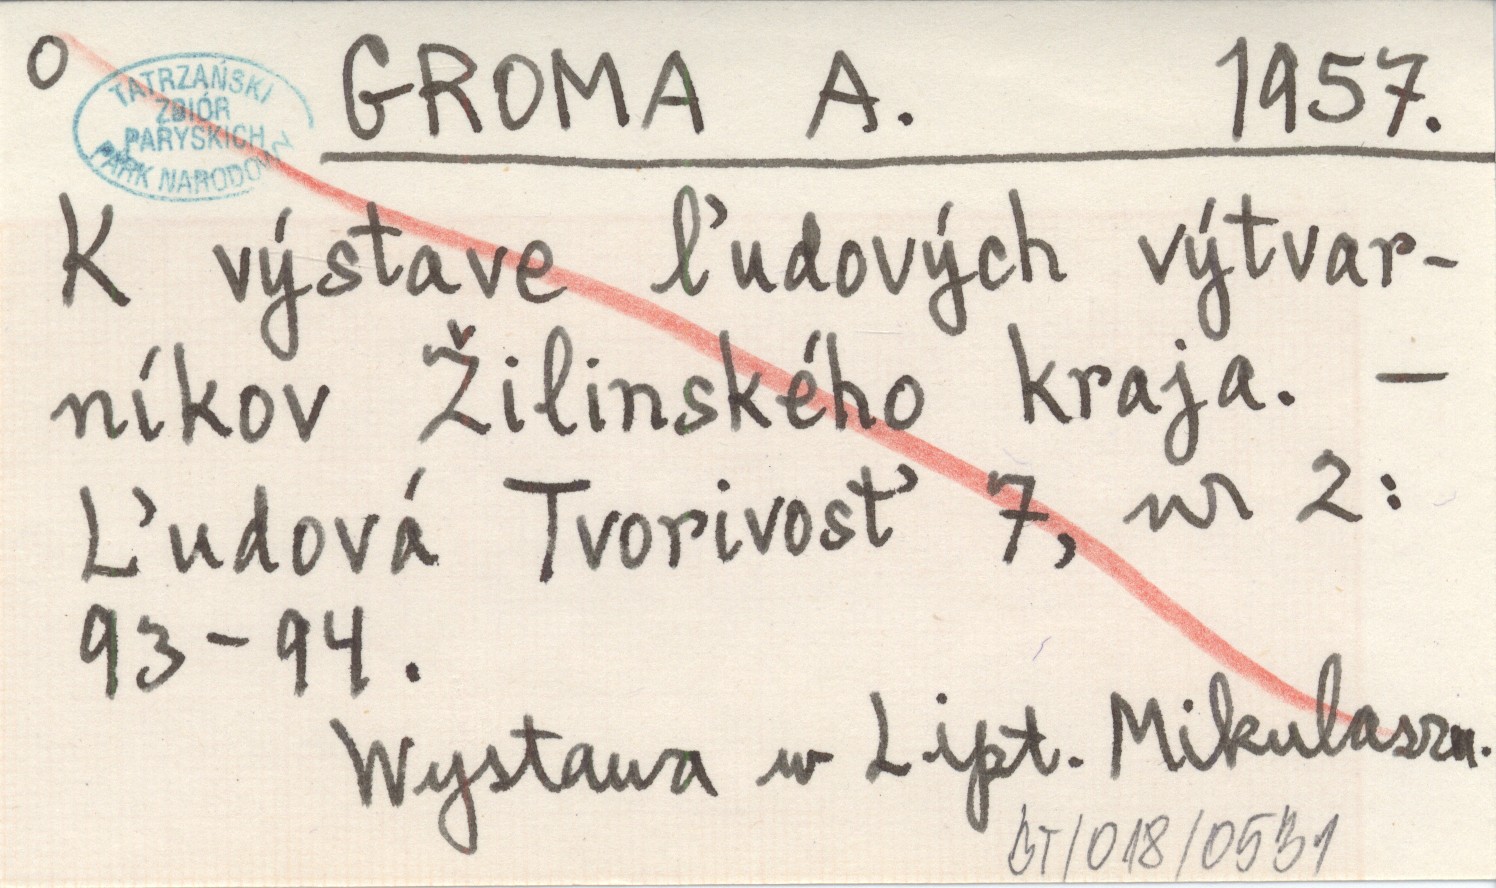 O
TATRZAŃSKI
ZBIÓR
PARYSKICH
PARK NARODOWY
GROMA A. 1957.
K výstave ľudových výtvar-
níkov Žilinského kraja. —
Ľudová Tvorivosť 7, nr 2:
93-94.
Wystawa w Lipt. Mikulaszu.
BT/018/0531